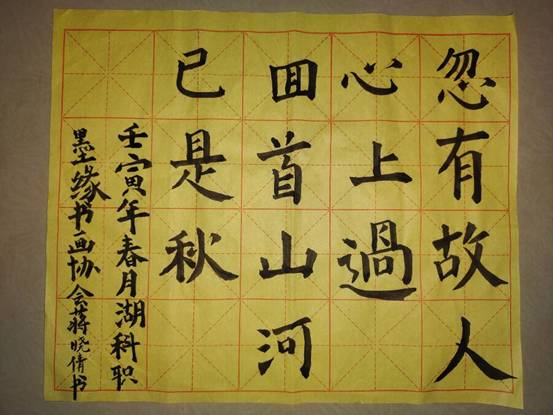 忽有故人
心上過
囬首山河
已是秋
壬寅年春月湖科职
墨缘书画协会蒋晓倩书